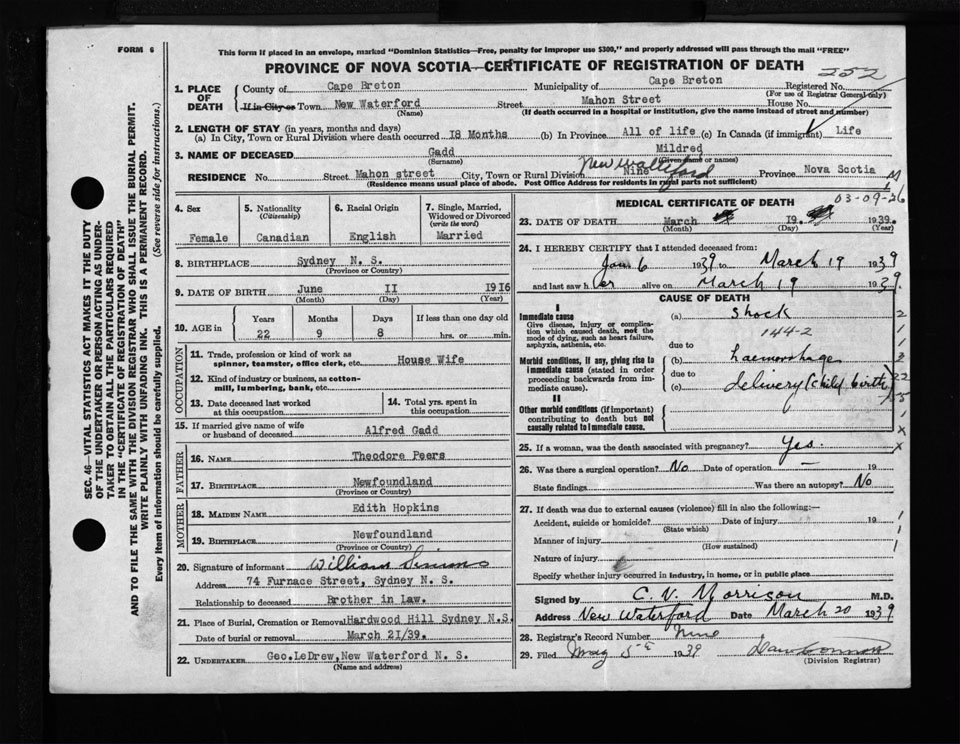 FORM 6
This form if placed in an envelope, marked "Dominion Statistics—Free, penalty for improper use $300," and properly addressed will pass through the mail "FREE"
PROVINCE OF NOVA SCOTIA—CERTIFICATE OF REGISTRATION OF DEATH
252
1. PLACE OF DEATH
County of Cape Breton Municipality of Cape Breton Registered No.
(For use of Registrar General only)
If in City or Town New Waterford Street Mahon Street House No.
(Name) (If death occurred in a hospital or institution, give the name instead of street and number)
2. LENGTH OF STAY (in years, months and days)
(a) In City, Town or Rural Division where death occurred 18 Months (b) In Province All of life (c) In Canada (if immigrant) Life
3. NAME OF DECEASED Gadd Mildred
(Surname) (Given name or names)
New Waterford
RESIDENCE No. Street Mahon street City, Town or Rural Division Nine Province Nova Scotia
(Residence means usual place of abode. Post Office Address for residents in rural parts not sufficient)
4. Sex Female
5. Nationality (Citizenship) Canadian
6. Racial Origin English
7. Single, Married, Widowed or Divorced (write the word) Married
8. BIRTHPLACE Sydney N. S.
(Province or Country)
9. DATE OF BIRTH June 11 1916
(Month) (Day) (Year)
10. AGE in Years Months Days If less than one day old
22 9 8 hrs. or min.
OCCUPATION
11. Trade, profession or kind of work as spinner, teamster, office clerk, etc. House Wife
12. Kind of industry or business, as cotton-mill, lumbering, bank, etc.
13. Date deceased last worked at this occupation
14. Total yrs. spent in this occupation
15. If married give name of wife or husband of deceased Alfred Gadd
FATHER
16. NAME Theodore Peers
17. BIRTHPLACE Newfoundland
(Province or Country)
MOTHER
18. MAIDEN NAME Edith Hopkins
19. BIRTHPLACE Newfoundland
(Province or Country)
20. Signature of informant William Simms
Address 74 Furnace Street, Sydney N. S.
Relationship to deceased Brother in Law.
21. Place of Burial, Cremation or Removal Hardwood Hill Sydney N.S.
Date of burial or removal March 21/39.
22. UNDERTAKER Geo. LeDrew, New Waterford N. S.
(Name and address)
MEDICAL CERTIFICATE OF DEATH
03-09-26
23. DATE OF DEATH March 19. 1939.
(Month) (Day) (Year)
24. I HEREBY CERTIFY that I attended deceased from:
Jan 6 1939 to March 19 1939
and last saw her alive on March 19 1939.
CAUSE OF DEATH
I
Immediate cause (a) Shock
Give disease, injury or complication which caused death, not the mode of dying, such as heart failure, asphyxia, asthenia, etc.
144-2
due to
Morbid conditions, if any, giving rise to immediate cause (stated in order proceeding backwards from immediate cause).
(b) haemorrhage
due to
(c) delivery (child birth)
II
Other morbid conditions (if important) contributing to death but not causally related to immediate cause.
25. If a woman, was the death associated with pregnancy? Yes.
26. Was there a surgical operation? No Date of operation — 19
State findings Was there an autopsy? No
27. If death was due to external causes (violence) fill in also the following:—
Accident, suicide or homicide? Date of injury 19
(State which)
Manner of injury
(How sustained)
Nature of injury
Specify whether injury occurred in industry, in home, or in public place
Signed by C. V. Morrison M.D.
Address New Waterford Date March 20 1939
28. Registrar's Record Number Nine
29. Filed May 5 1939
(Division Registrar)
SEC. 46—VITAL STATISTICS ACT MAKES IT THE DUTY
OF THE UNDERTAKER OR PERSON ACTING AS UNDER-
TAKER TO OBTAIN ALL THE PARTICULARS REQUIRED
IN THE "CERTIFICATE OF REGISTRATION OF DEATH"
AND TO FILE THE SAME WITH THE DIVISION REGISTRAR WHO SHALL ISSUE THE BURIAL PERMIT.
WRITE PLAINLY WITH UNFADING INK. THIS IS A PERMANENT RECORD.
Every item of information should be carefully supplied. (See reverse side for instructions.)